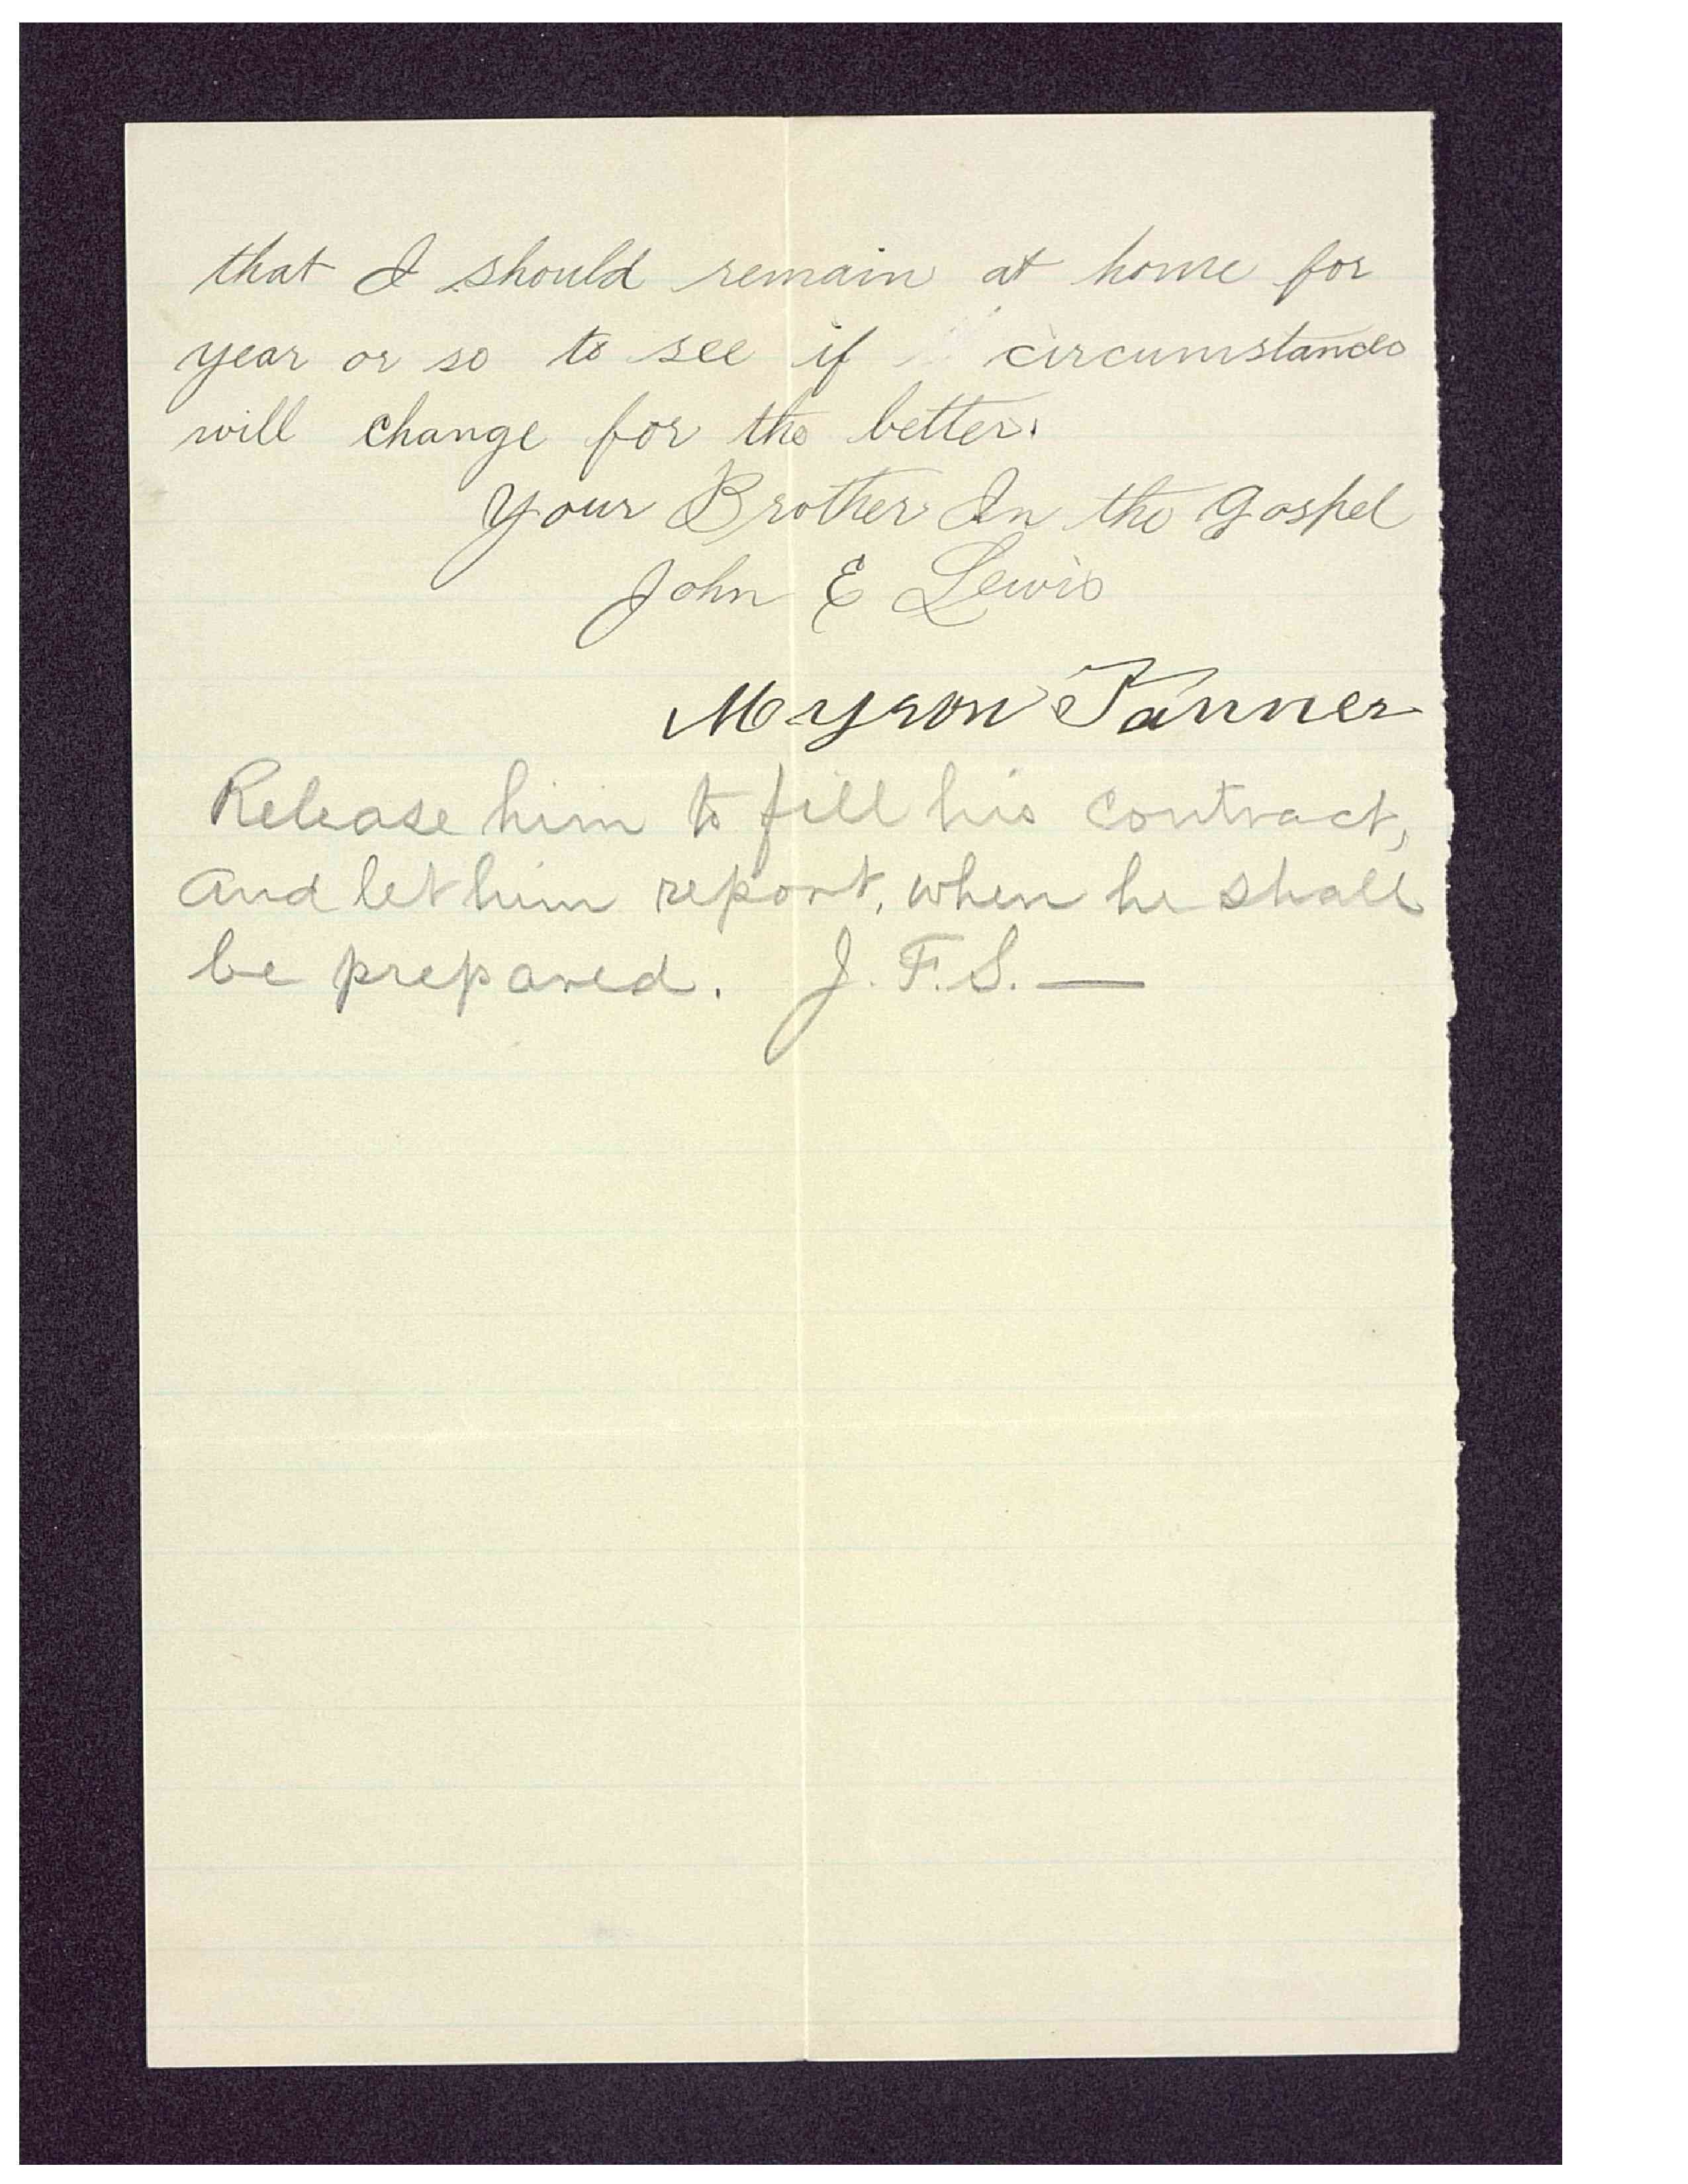 that I should remain at home for
year or so to see if circumstances
will change for the better.
Your Brother In the Gospel
John E Lewis
Myron Tanner
Release him to fill his contract,
and let him report, when he shall
be prepared. J. F. S. —